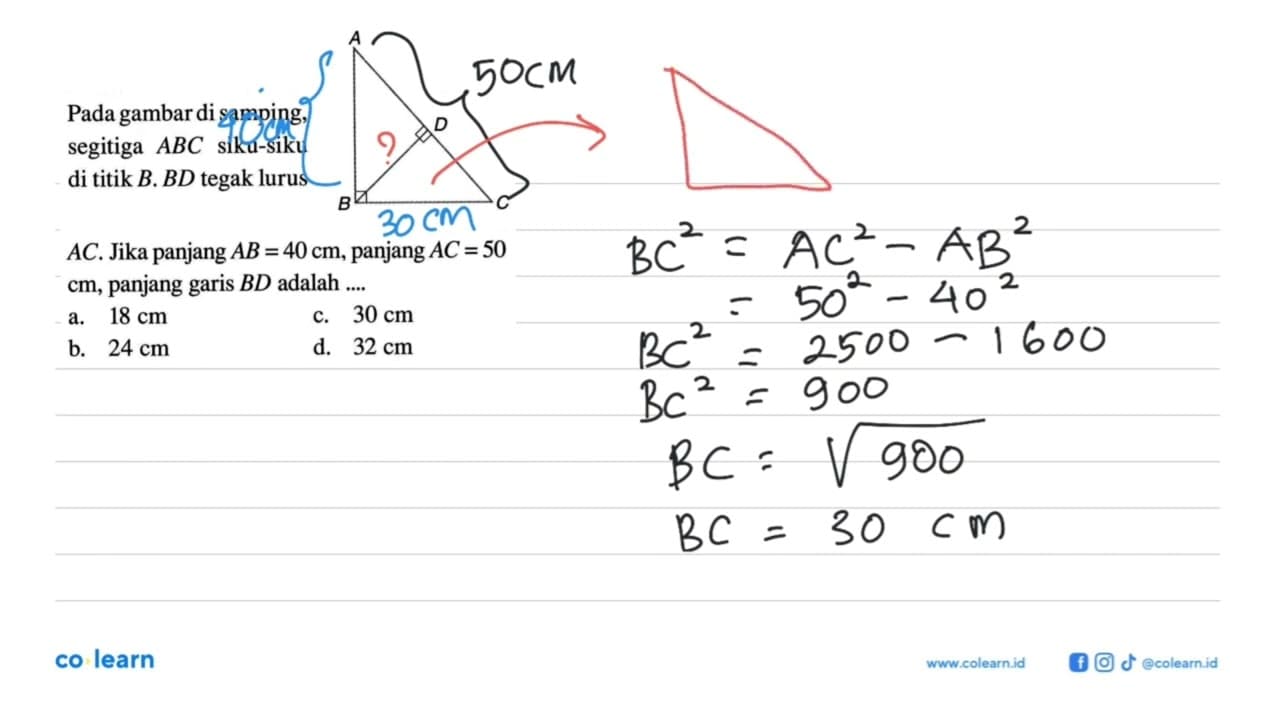 A
50CM
Pada gambar di samping,
40cm
D
segitiga ABC siku-siku
?
di titik B. BD tegak lurus
B
C
30 CM
AC. Jika panjang AB = 40 cm, panjang AC = 50
cm, panjang garis BD adalah ....
a. 18 cm c. 30 cm
b. 24 cm d. 32 cm
BC² = AC² - AB²
= 50² - 40²
BC² = 2500 - 1600
BC² = 900
BC = √900
BC = 30 cm
co learn
www.colearn.id
@colearn.id